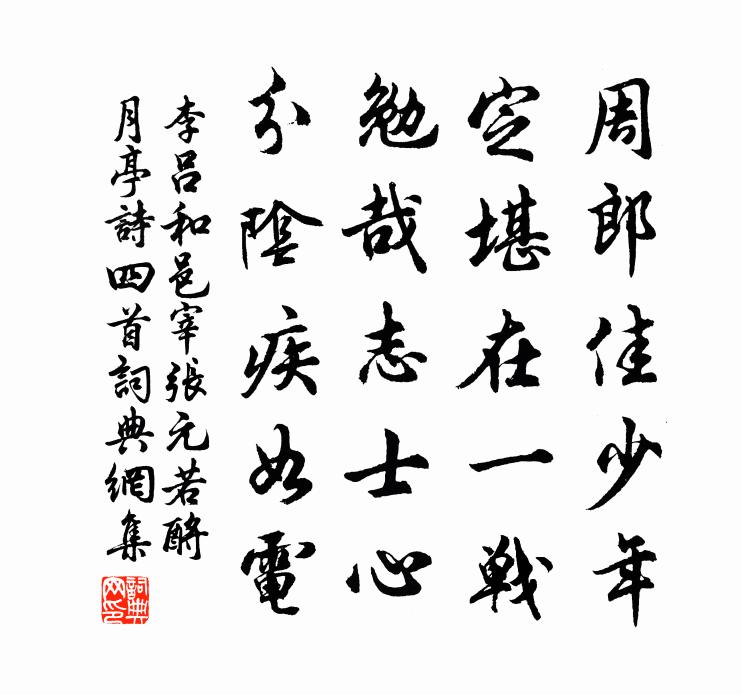 周郎佳少年
定堪在一戰
勉哉志士心
分陰疾如電
李呂和邑宰張元若酹
月亭詩四首詞典網集
詞典網印